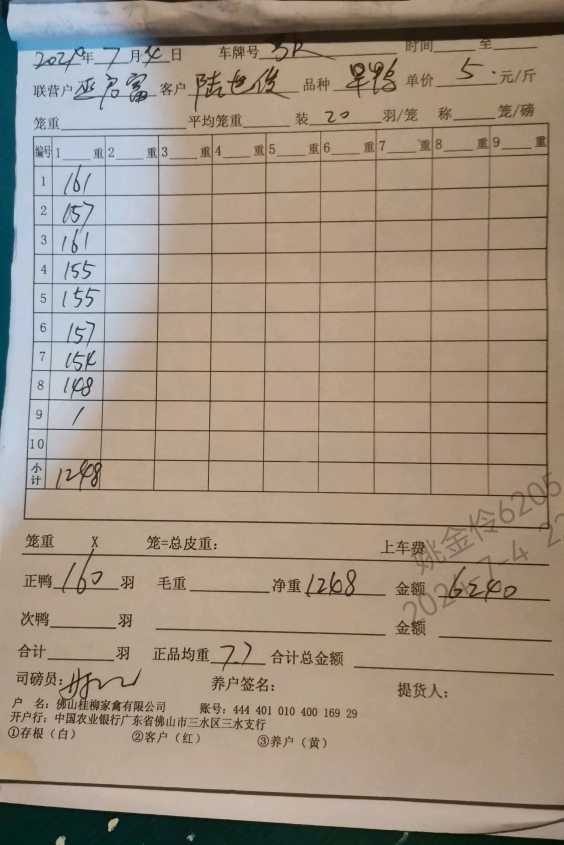 2024年 7月 4日 车牌号 时间 至
联营户 巫启富 客户 陆世俊 品种 旱鸭 单价 5. 元/斤
笼重 平均笼重 装 20 羽/笼 称 笼/磅
编号 1 重 2 重 3 重 4 重 5 重 6 重 7 重 8 重 9 重
1 161
2 157
3 161
4 155
5 155
6 157
7 154
8 148
9 /
10
小计 1248
笼重 X 笼=总皮重: 上车费
正鸭 160 羽 毛重 净重 1248 金额 6240
次鸭 羽 金额
合计 羽 正品均重 7.7 合计总金额
司磅员: 养户签名: 提货人:
户 名: 佛山桂柳家禽有限公司 账号: 444 401 010 400 169 29
开户行: 中国农业银行广东省佛山市三水区三水支行
①存根(白) ②客户(红) ③养户(黄)
姚金伶6205